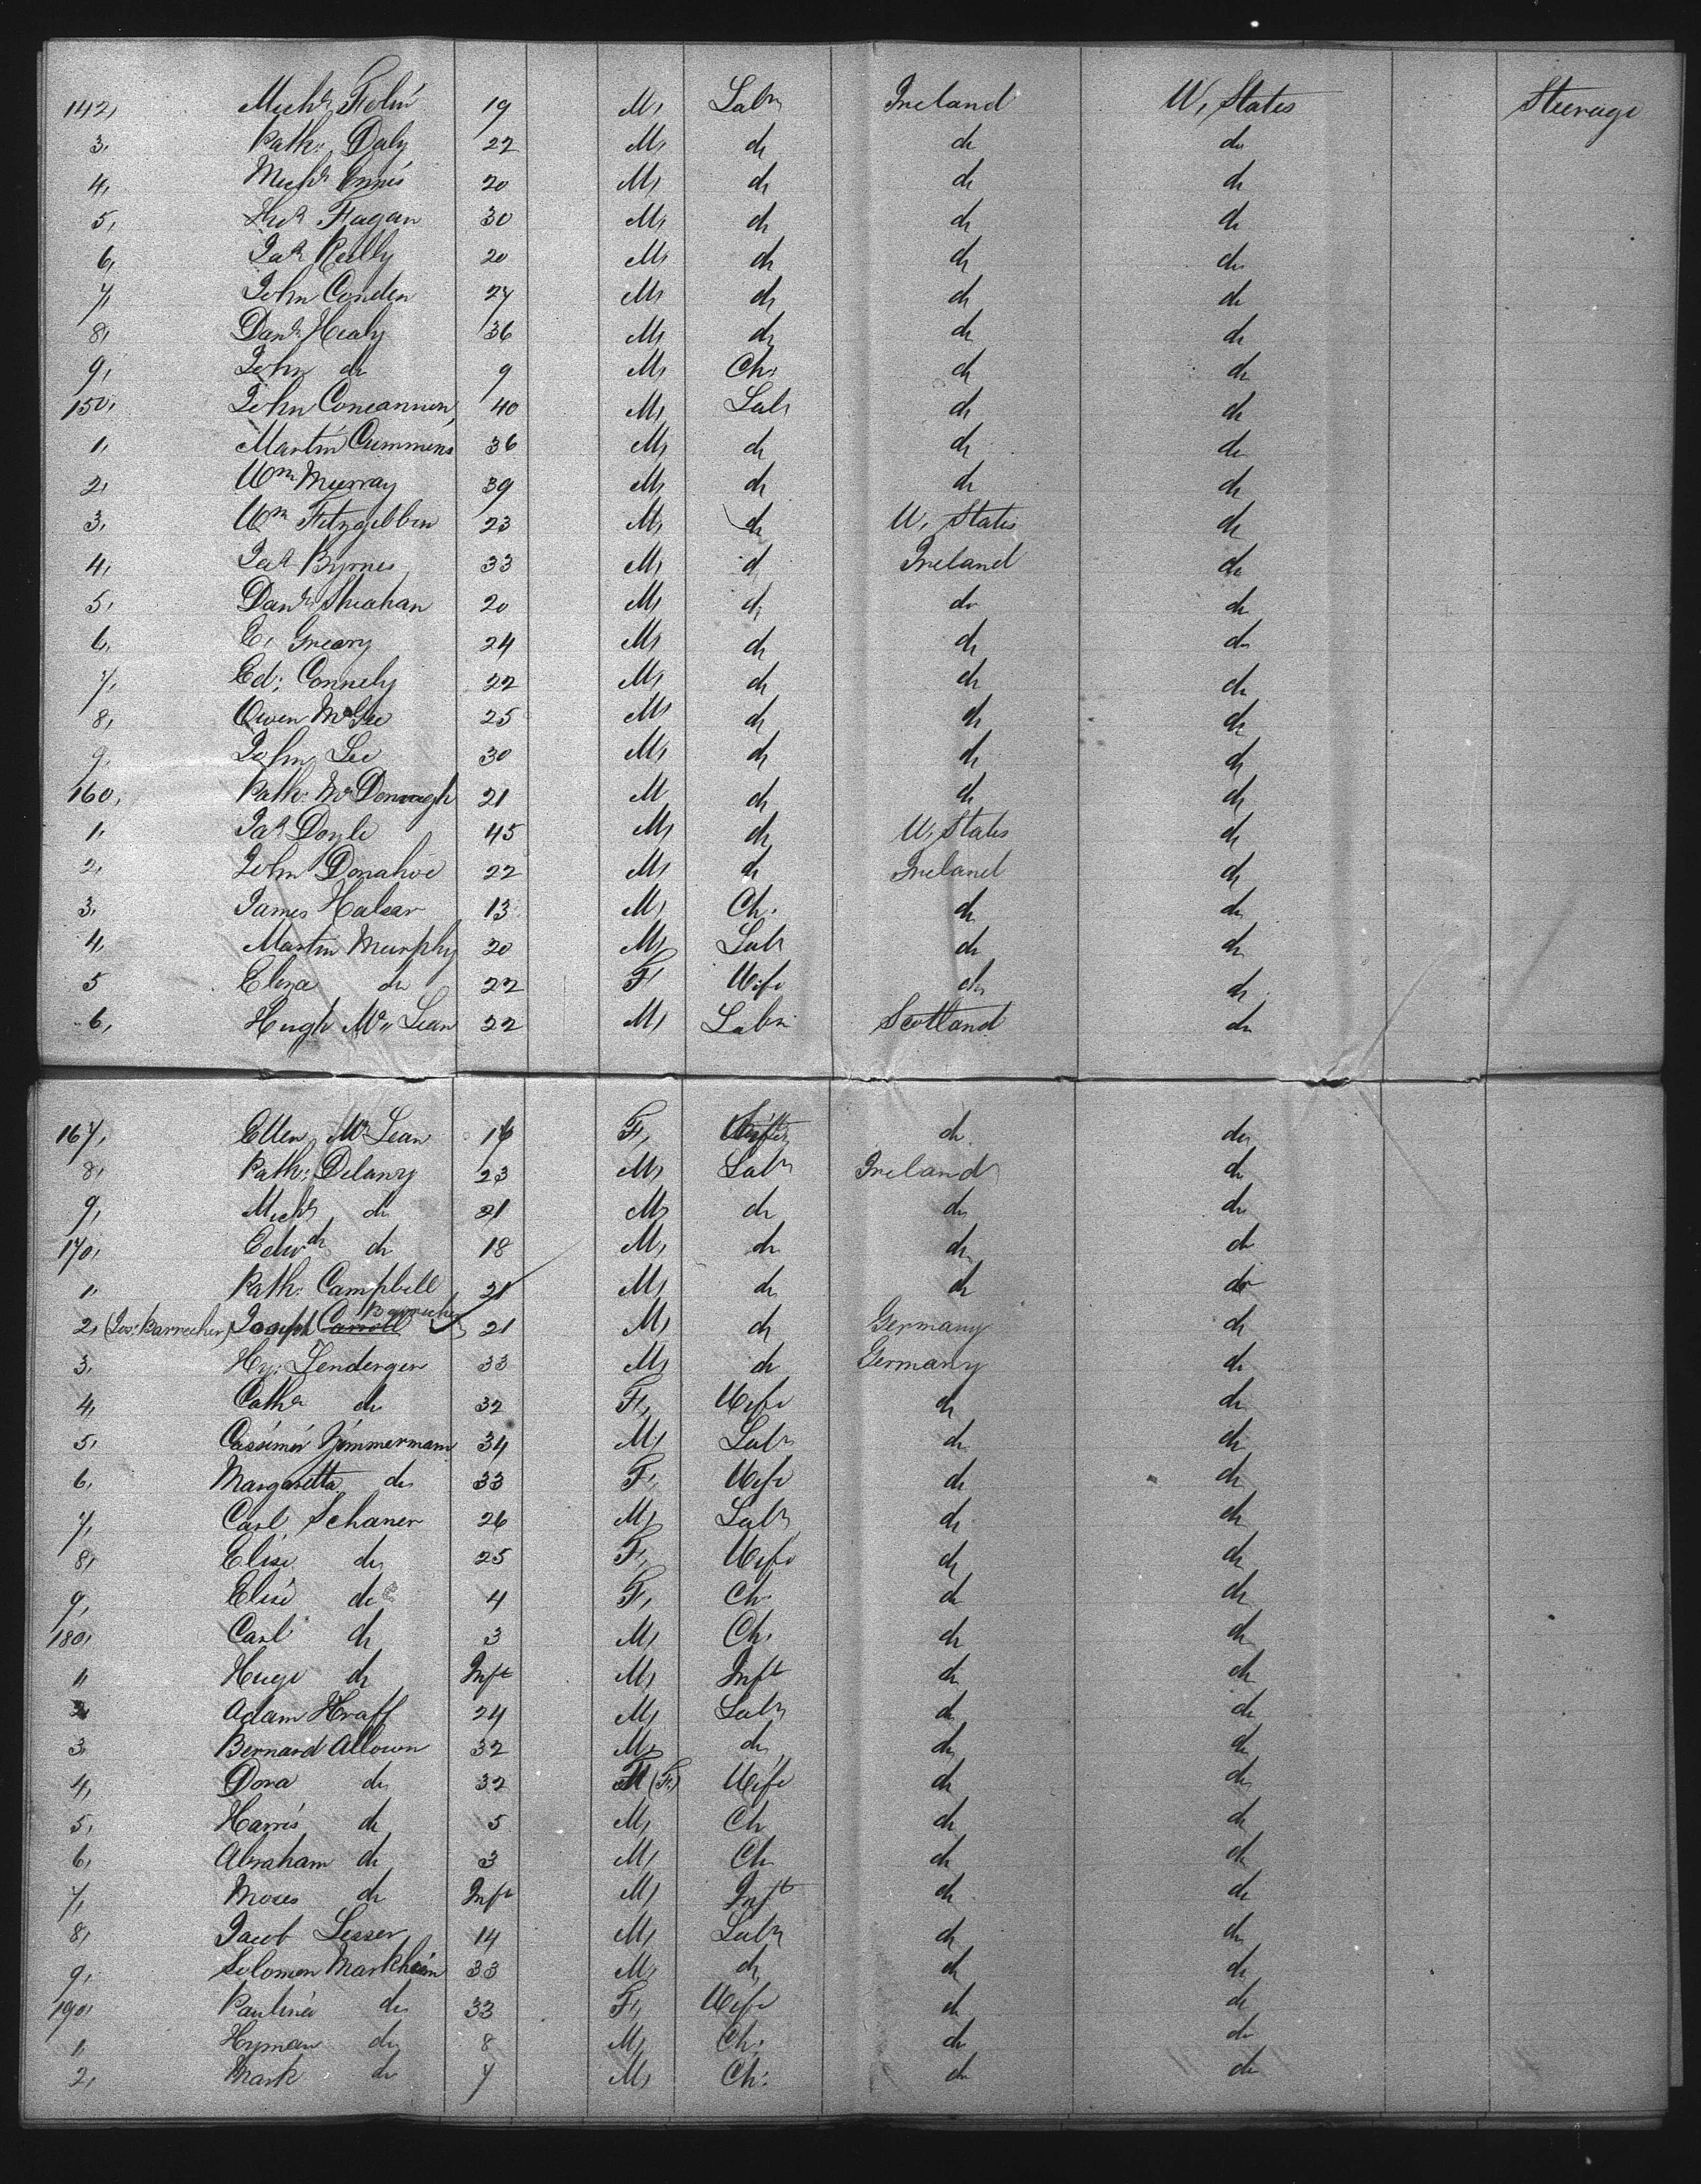 142, Michl 19 M, Labr Ireland U, States Steerage
3, Patk: Daly 22 M, do do do
4, Michl Ennis 20 M, do do do
5, Thos Fagan 30 M, do do do
6, Jas Reilly 20 M, do do do
7, John Conden 27 M, do do do
8, Danl Healy 36 M, do do do
9, John do 9 M, Ch: do do
150, John Concannon 40 M, Labr do do
1, Martin Cummins 36 M, do do do
2, Wm Murray 39 M, do do do
3, Wm Fitzgibbon 23 M, do U, States do
4, Jas Byrnes 33 M, do Ireland do
5, Danl Sheahan 20 M, do do do
6, E, 24 M, do do do
7, Ed: Connely 22 M, do do do
8, Owen McGee 25 M, do do do
9, John Lee 30 M, do do do
160, Patk: McDonough 21 M do do do
1, Jas Doyle 45 M, do U, States do
2, John Donahoe 22 M, do Ireland do
3, James 13 M, Ch: do do
4, Martin Murphy 20 M, Labr do do
5 Eliza do 22 F, Wife do do
6, Hugh Mc Lean 22 M, Labr Scotland do
167, Ellen McLean 16 F, do do
8, Patk: Delany 23 M, Labr Ireland do
9, Michl do 21 M, do do do
170, Edwd do 18 M, do do do
1, Patk: Campbell 21 M, do do do
2, (Jos: Barrecher) Joseph Carroll Barrecher 21 M, do Germany do
3, Hy: Lenderger 33 M, do Germany do
4, Cathe do 32 F, Wife do do
5, Cassimir Zimmermann 34 M, Labr do do
6, Margaretta do 33 F, Wife do do
7, Carl Schaner 26 M, Labr do do
8, Elise do 25 F, Wife do do
9, Elise do 4 F, Ch: do do
180, Carl do 3 M, Ch: do do
1, Hugo do Inft M, Inft do do
2, Adam Hraff 24 M, Labr do do
3, Bernard Allown 32 M, do do do
4, Dora do 32 M (F.) Wife do do
5, Harris do 5 M, Ch do do
6, Abraham do 3 M, Ch do do
7, Moses do Inft M, Inft do do
8, Jacob Lesser 14 M, Labr do do
9, Solomon Markheim 33 M, do do do
190, Paulina do 33 F, Wife do do
1, Hyman do 8 M, Ch: do do
2, Mark do 7 M, Ch: do do